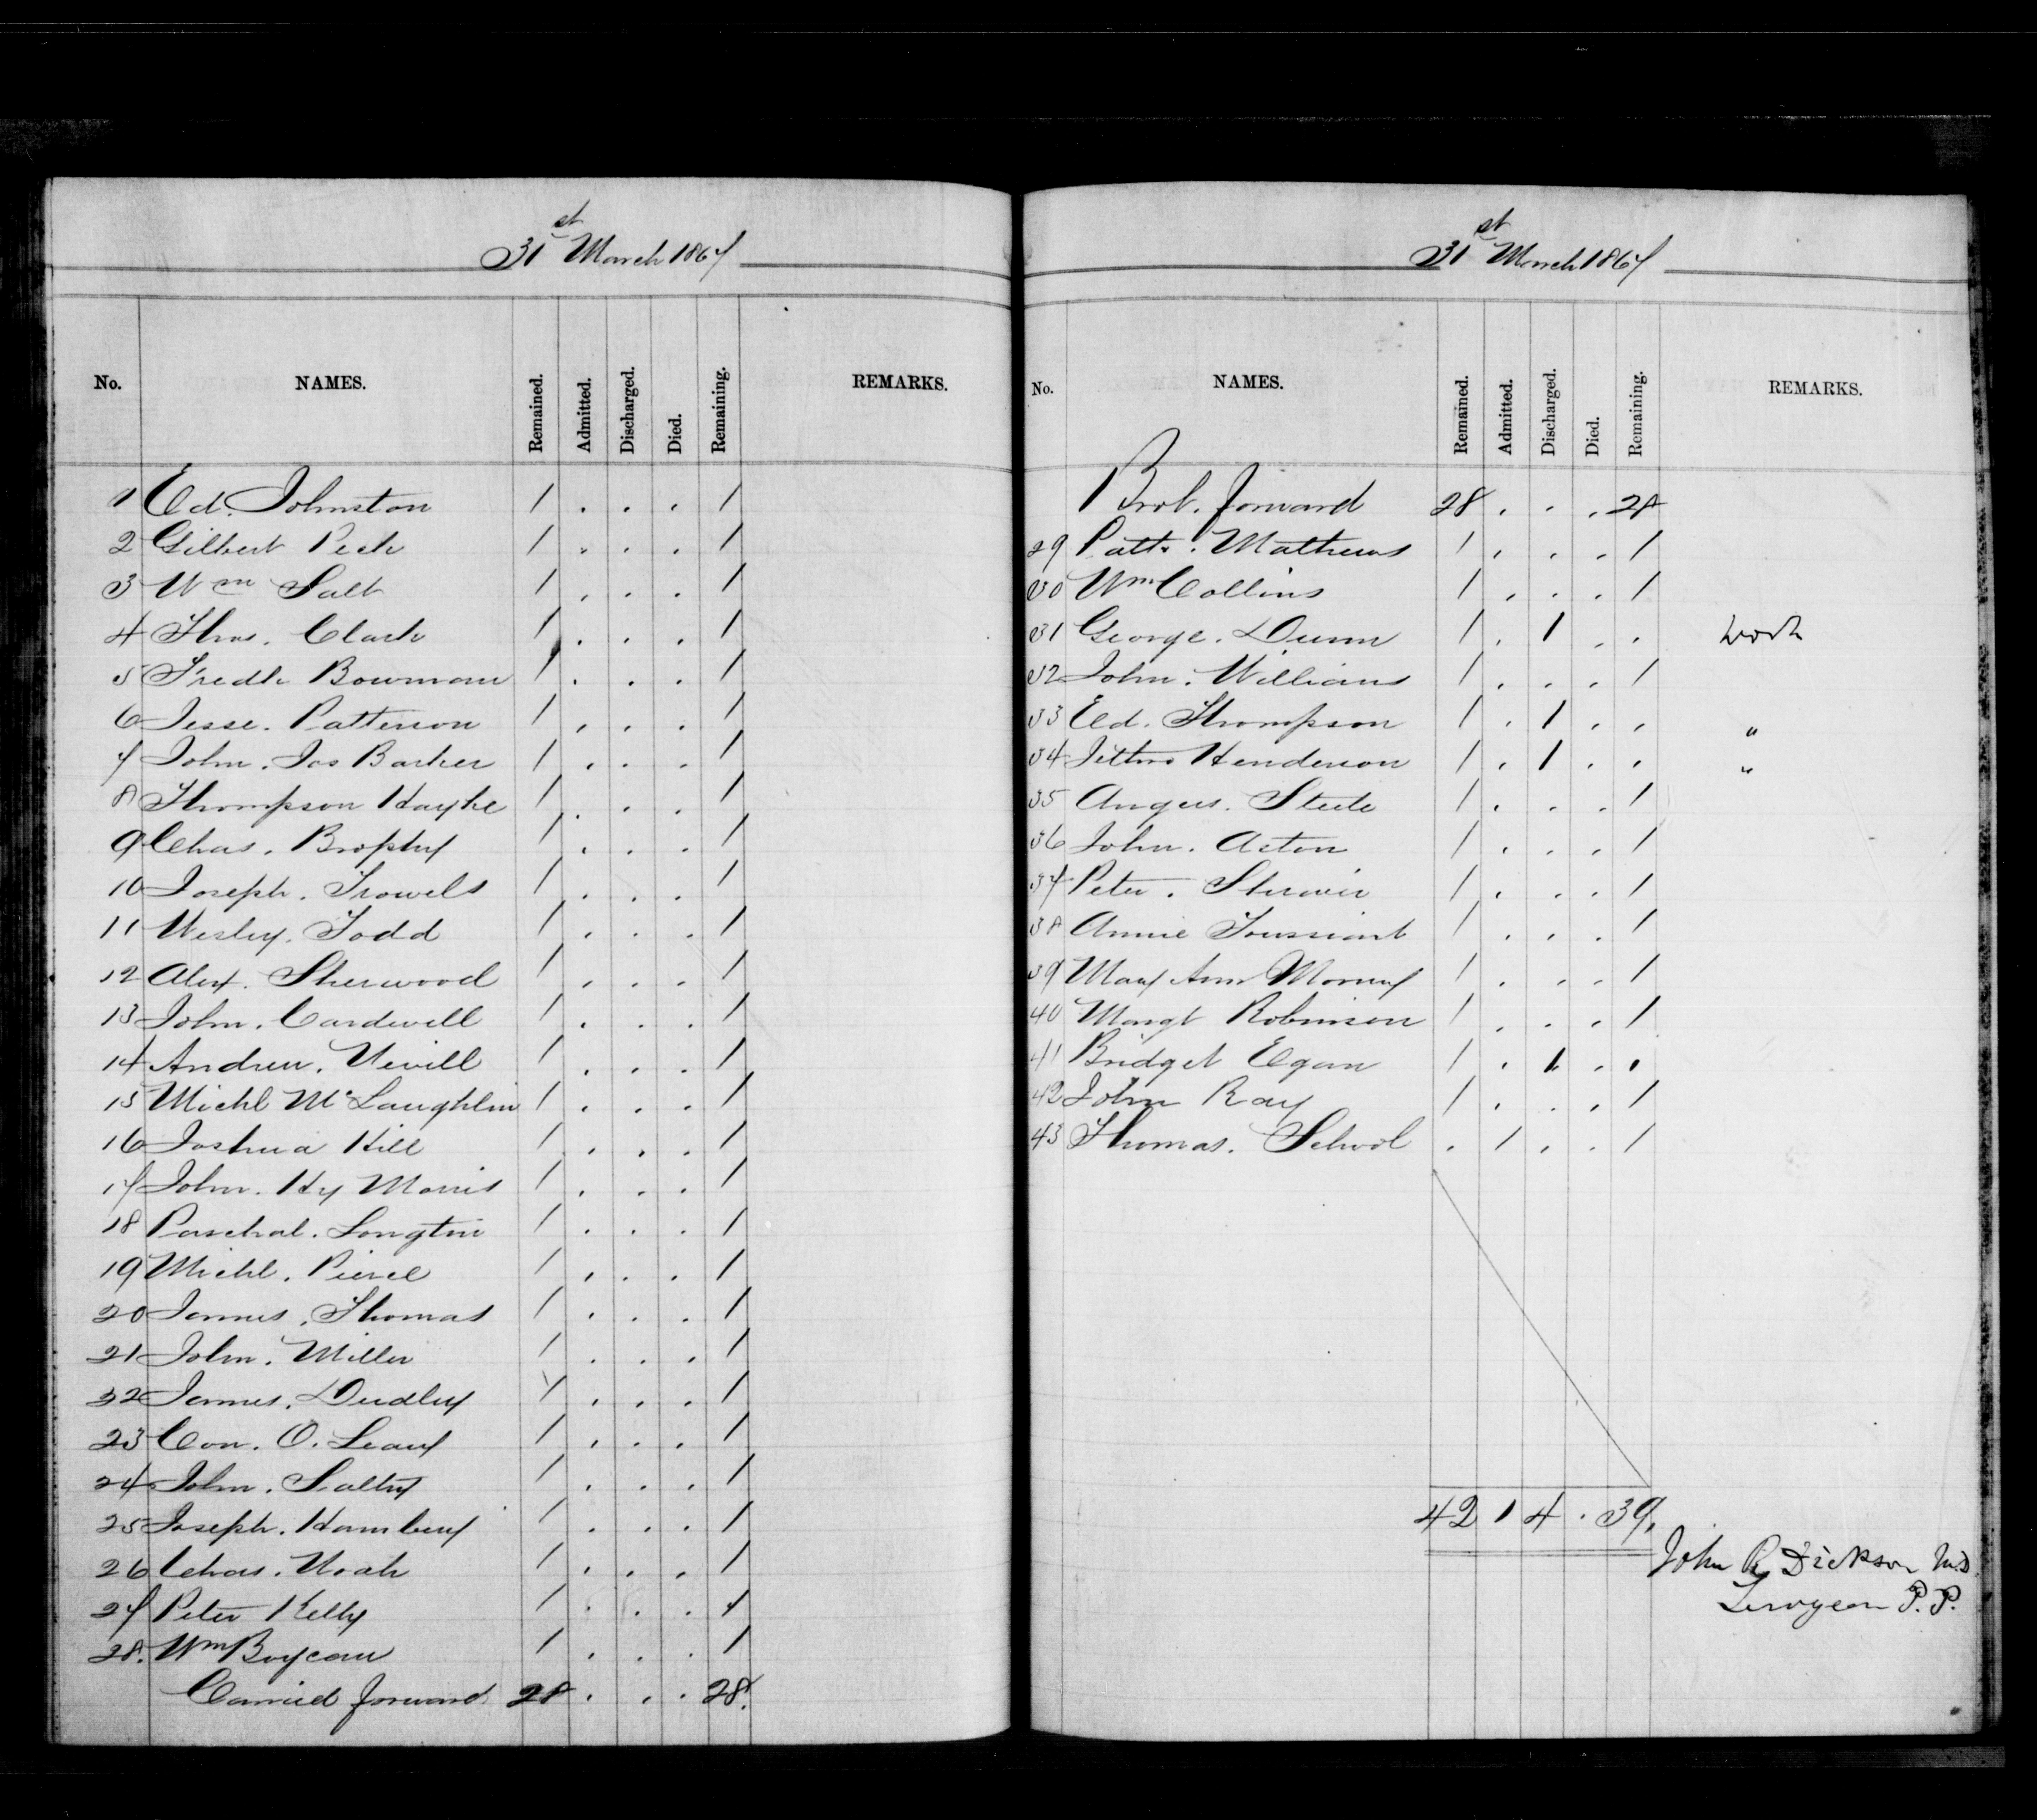 31st March 1867
No. NAMES. Remained. Admitted. Discharged. Died. Remaining. REMARKS.
1 Ed. Johnston 1 . . . 1
2 Gilbert Peck 1 . . . 1
3 Wm Salt 1 . . . 1
4 Thos. Clark 1 . . . 1
5 Fredk Bowman 1 . . . 1
6 Jesse. Patterson 1 . . . 1
7 John. Jos Barker 1 . . . 1
8 Thompson 1 . . . 1
9 Chas. Brophy 1 . . . 1
10 Joseph. Trowels 1 . . . 1
11 Wesley. Todd 1 . . . 1
12 Alex. Sherwood 1 . . . 1
13 John. Cardwell 1 . . . 1
14 Andrew. Nevill 1 . . . 1
15 Michl McLaughlin 1 . . . 1
16 Joshua Hill 1 . . . 1
17 John. Hy Morris 1 . . . 1
18 Paschal. Longtin 1 . . . 1
19 Michl. Pierce 1 . . . 1
20 James. Thomas 1 . . . 1
21 John. Miller 1 . . . 1
22 James. Dudley 1 . . . 1
23 Con. O. Leary 1 . . . 1
24 John. Saltry 1 . . . 1
25 Joseph. 1 . . . 1
26 Chas. Noah 1 . . . 1
27 Peter Kelly 1 . . . 1
28. Wm Boyeau 1 . . . 1
Carried forward 28 . . . 28.
31st March 1867
No. NAMES. Remained. Admitted. Discharged. Died. Remaining. REMARKS.
Brot. forward 28 . . . 28
29 Patk. Mathews 1 . . . 1
30 Wm Collins 1 . . . 1
31 George. Dunn 1 . 1 . . work
32 John. Williams 1 . . . 1
33 Ed. Thompson 1 . 1 . . "
34 Jethro Henderson 1 . 1 . . "
35 Angus. Steele 1 . . . 1
36 John. Acton 1 . . . 1
37 Peter. Sherwin 1 . . . 1
38 Annie Toussiant 1 . . . 1
39 Mary Ann Morney 1 . . . 1
40 Margt Robinson 1 . . . 1
41 Bridget Egan 1 . 1 . .
42 John Ray 1 . . . 1
43 Thomas. School . 1 . . 1
42 1 4 . 39.
John R Dickson M.D.
Surgeon P. P.